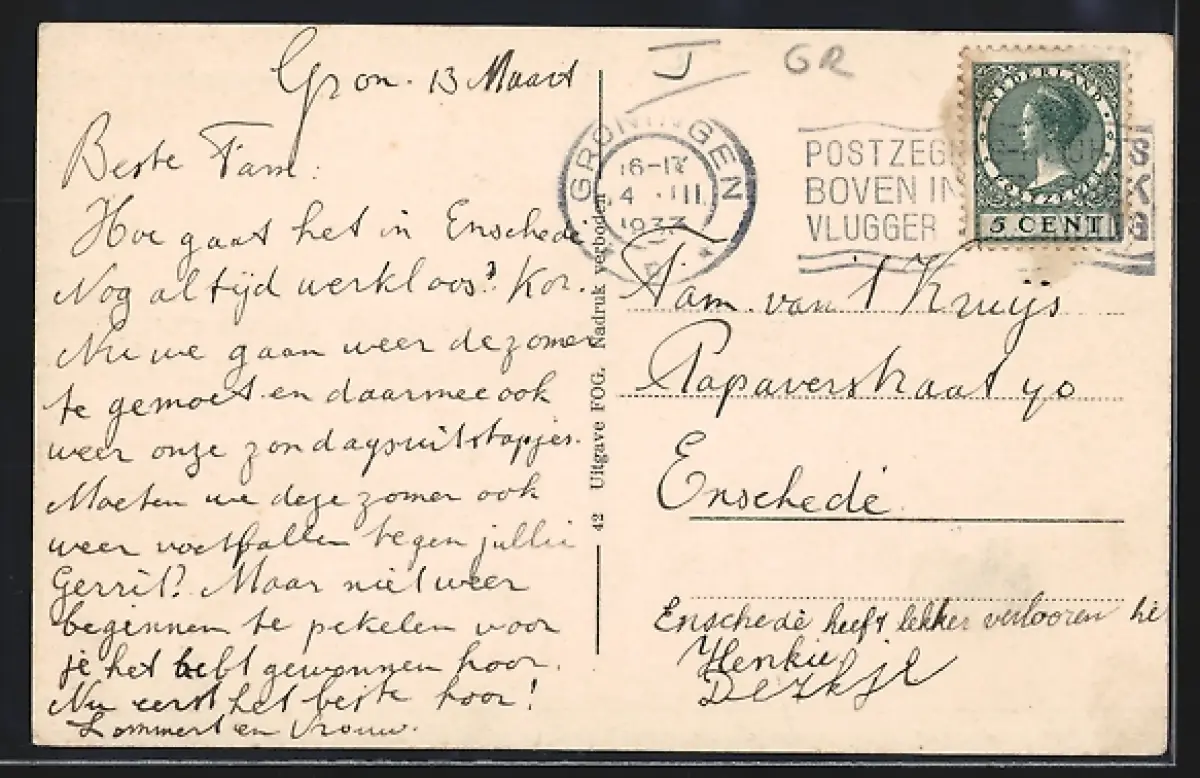 Gron. 13 Maart
Beste Fam:
Hoe gaat het in Enschede
Nog altijd werkloos? Kor.
Nu we gaan weer de zomer
te gemoet en daarmee ook
weer onze zondagsuitstapjes.
Moeten we deze zomer ook
weer voetballen tegen jullie
Gerrit? Maar niet weer
beginnen te pekelen voor
je het hebt gewonnen hoor.
Nu eerst het beste hoor!
Lammert en Vrouw.
42 Uitgave FOG. Nadruk verboden
J
GR
GRONINGEN
16-17
4 III
1933
POSTZEG
BOVEN IN
VLUGGER
NEDERLAND
POSTZEGEL
5 CENT
Fam. van 't Kruijs
Papaverstraat 40
Enschedé
Enschedé heeft lekker verlooren hé
Henkie